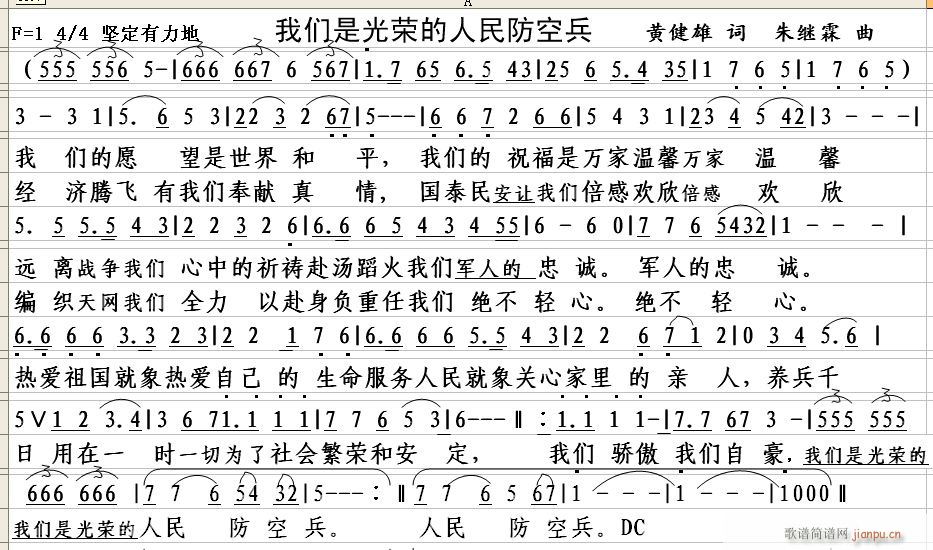 我们是光荣的人民防空兵
F=1 4/4 坚定有力地 黄健雄 词 朱继霖 曲
(555 556 5-|666 667 6 567|1.7 65 6.5 43|25 6 5.4 35|1 7 6 5|1 7 6 5)
3 - 3 1|5. 6 5 3|22 3 2 67|5---|6 6 7 2 6 6|5 4 3 1|23 4 5 42|3 - - -|
我 们的愿 望是世界 和 平, 我们的 祝福是万家温馨万家 温 馨
经 济腾飞 有我们奉献 真 情, 国泰民安让我们倍感欢欣倍感 欢 欣
5. 5 5.5 4 3|2 2 3 2 6|6.6 6 5 4 3 4 55|6 - 6 0|7 7 6 5432|1 - - -|
远 离战争我们 心中的祈祷赴汤蹈火我们军人的 忠 诚。 军人的忠 诚。
编 织天网我们 全力 以赴身负重任我们 绝不 轻 心。 绝不 轻 心。
6.6 6 6 3.3 2 3|2 2 1 7 6|6.6 6 6 5.5 4 3|2 2 6 7 1 2|0 3 4 5.6 |
热爱祖国就象热爱自己 的 生命服务人民就象关心家里 的 亲 人, 养兵千
5∨1 2 3.4|3 6 71.1 1 1|7 7 6 5 3|6---‖:1.1 1 1-|7.7 67 3 -|555 555
日 用在一 时一切为了社会繁荣和安 定, 我们 骄傲 我们 自 豪,我们是光荣的
666 666 |7 7 6 54 32|5---:‖7 7 6 5 67|1 - - -|1 - - -|1000‖
我们是光荣的人民 防 空 兵。 人民 防 空兵。DC
歌谱简谱网
jianpu.cn